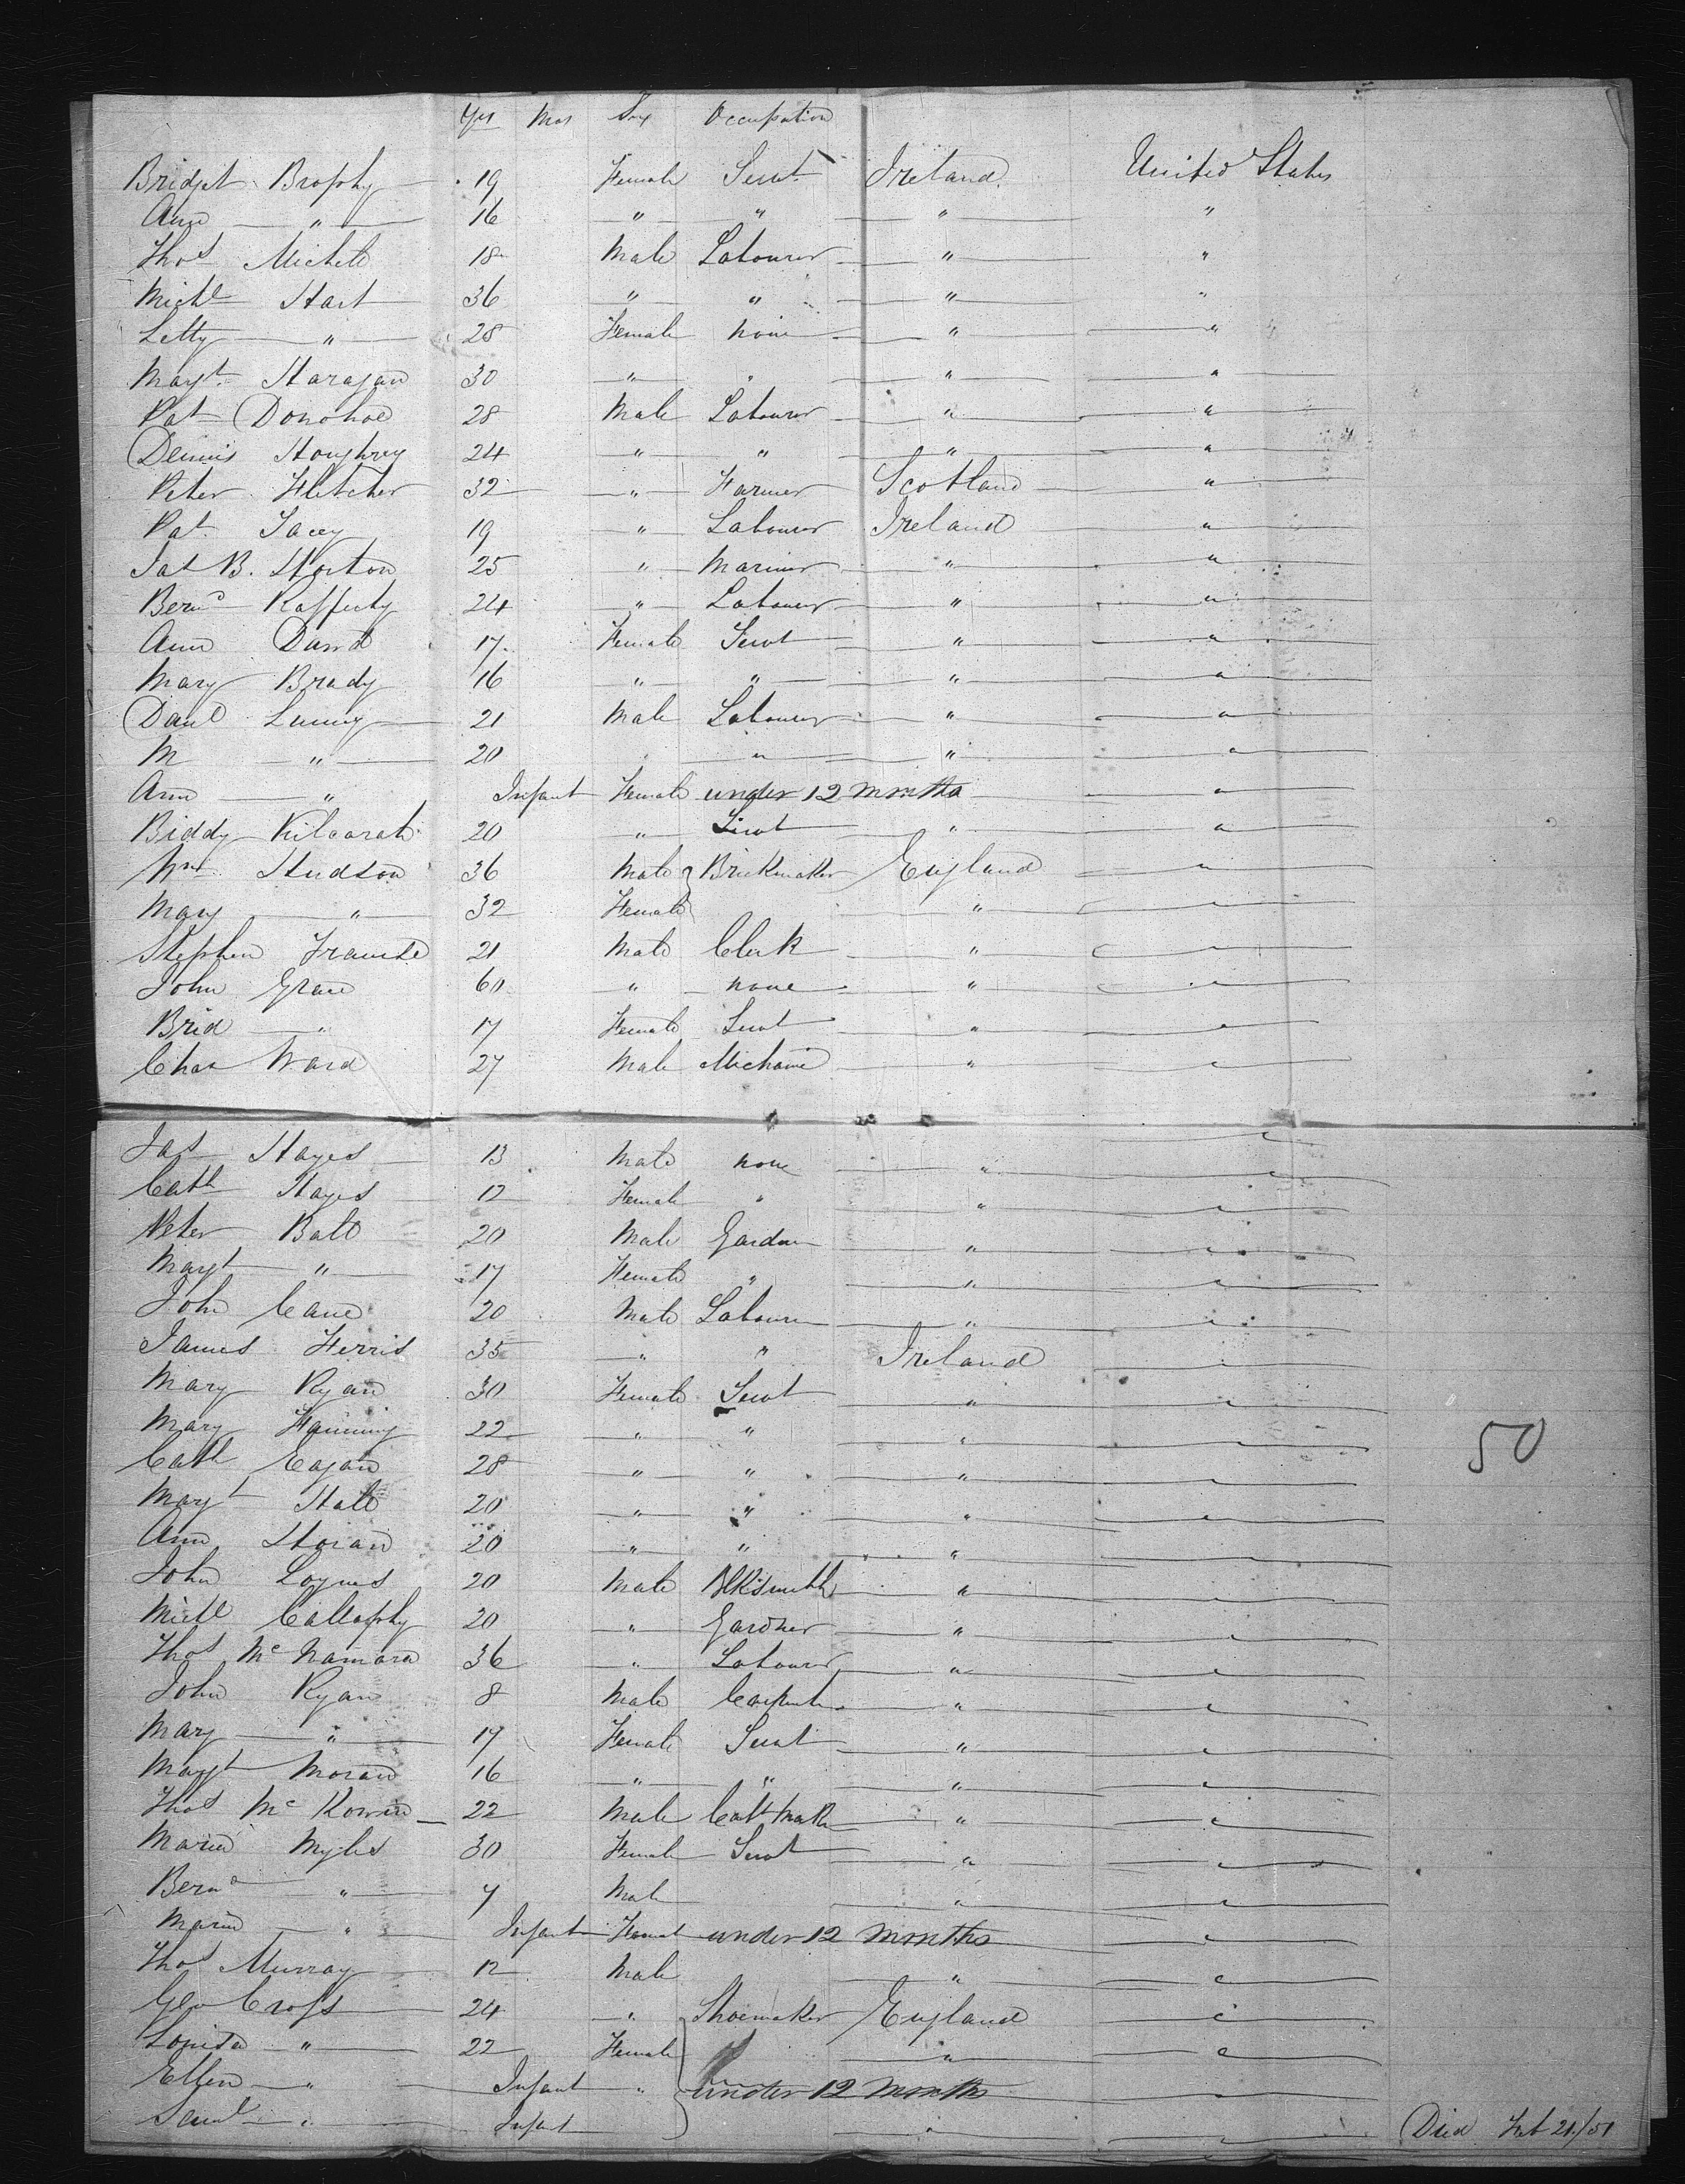 Yrs Mos Sex Occupation
Bridget Brophy 19 Female Servt Ireland United States
Ann " 16 " " " "
Thos Michele 18 Male Labourer " "
Michl Hart 36 " " " "
Letty " 28 Female none " "
Margt. Haragan 30 " " " "
Pat Donohoe 28 Male Labourer " "
Dennis Houghrey 24 " " " "
Peter Fletcher 32 " Farmer Scotland "
Pat. Lacey 19 " Labourer Ireland "
Jas B. Horton 25 " Mariner " "
Bernd Rafferty 24 " Labourer " "
Ann 17 Female Servt " "
Mary Brady 16 " " " "
Danl Lunny 21 Male Labourer " "
M " 20 " " " "
Ann " Infant Female under 12 months "
Biddy 20 " Servt " "
Wm. Hudson 36 Male Brickmaker England "
Mary " 32 Female " "
Stephen 21 Male Clerk " "
John Grace 60 " none " "
Brid " 17 Female Servt " "
Chas Ward 27 Male Mechanic " "
Jas Hayes 13 Male none " "
Cath Hayes 12 Female " " "
Peter Balt 20 Male Gardner " "
Margt " 17 Female " " "
John Cane 20 Male Labourer " "
James Ferris 35 " " Ireland "
Mary Ryan 30 Female Servt " "
Mary Fanning 22 " " " "
Cath Eagan 28 " " " "
Margt Hale 20 " " " "
Ann Horan 20 " " " "
John Loynes 20 Male Blksmith " "
Michl Callaphy 20 " Gardner " "
Thos McNamara 36 " Labourer " "
John Ryan 8 Male Carpenter " "
Mary " 17 Female Servt " "
Margt Moran 16 " " " "
Thos McKowen 22 Male Cabt Maker " "
Maria Myles 30 Female Servt " "
Bernd " 7 Male " "
Maria " Infant Female under 12 months "
Thos Murray 12 Male " "
Geo Cross 24 " Shoemaker England "
Louisa " 22 Female " "
Ellen " Infant " under 12 months "
Saml " Infant " " Died Feb 21/51
50